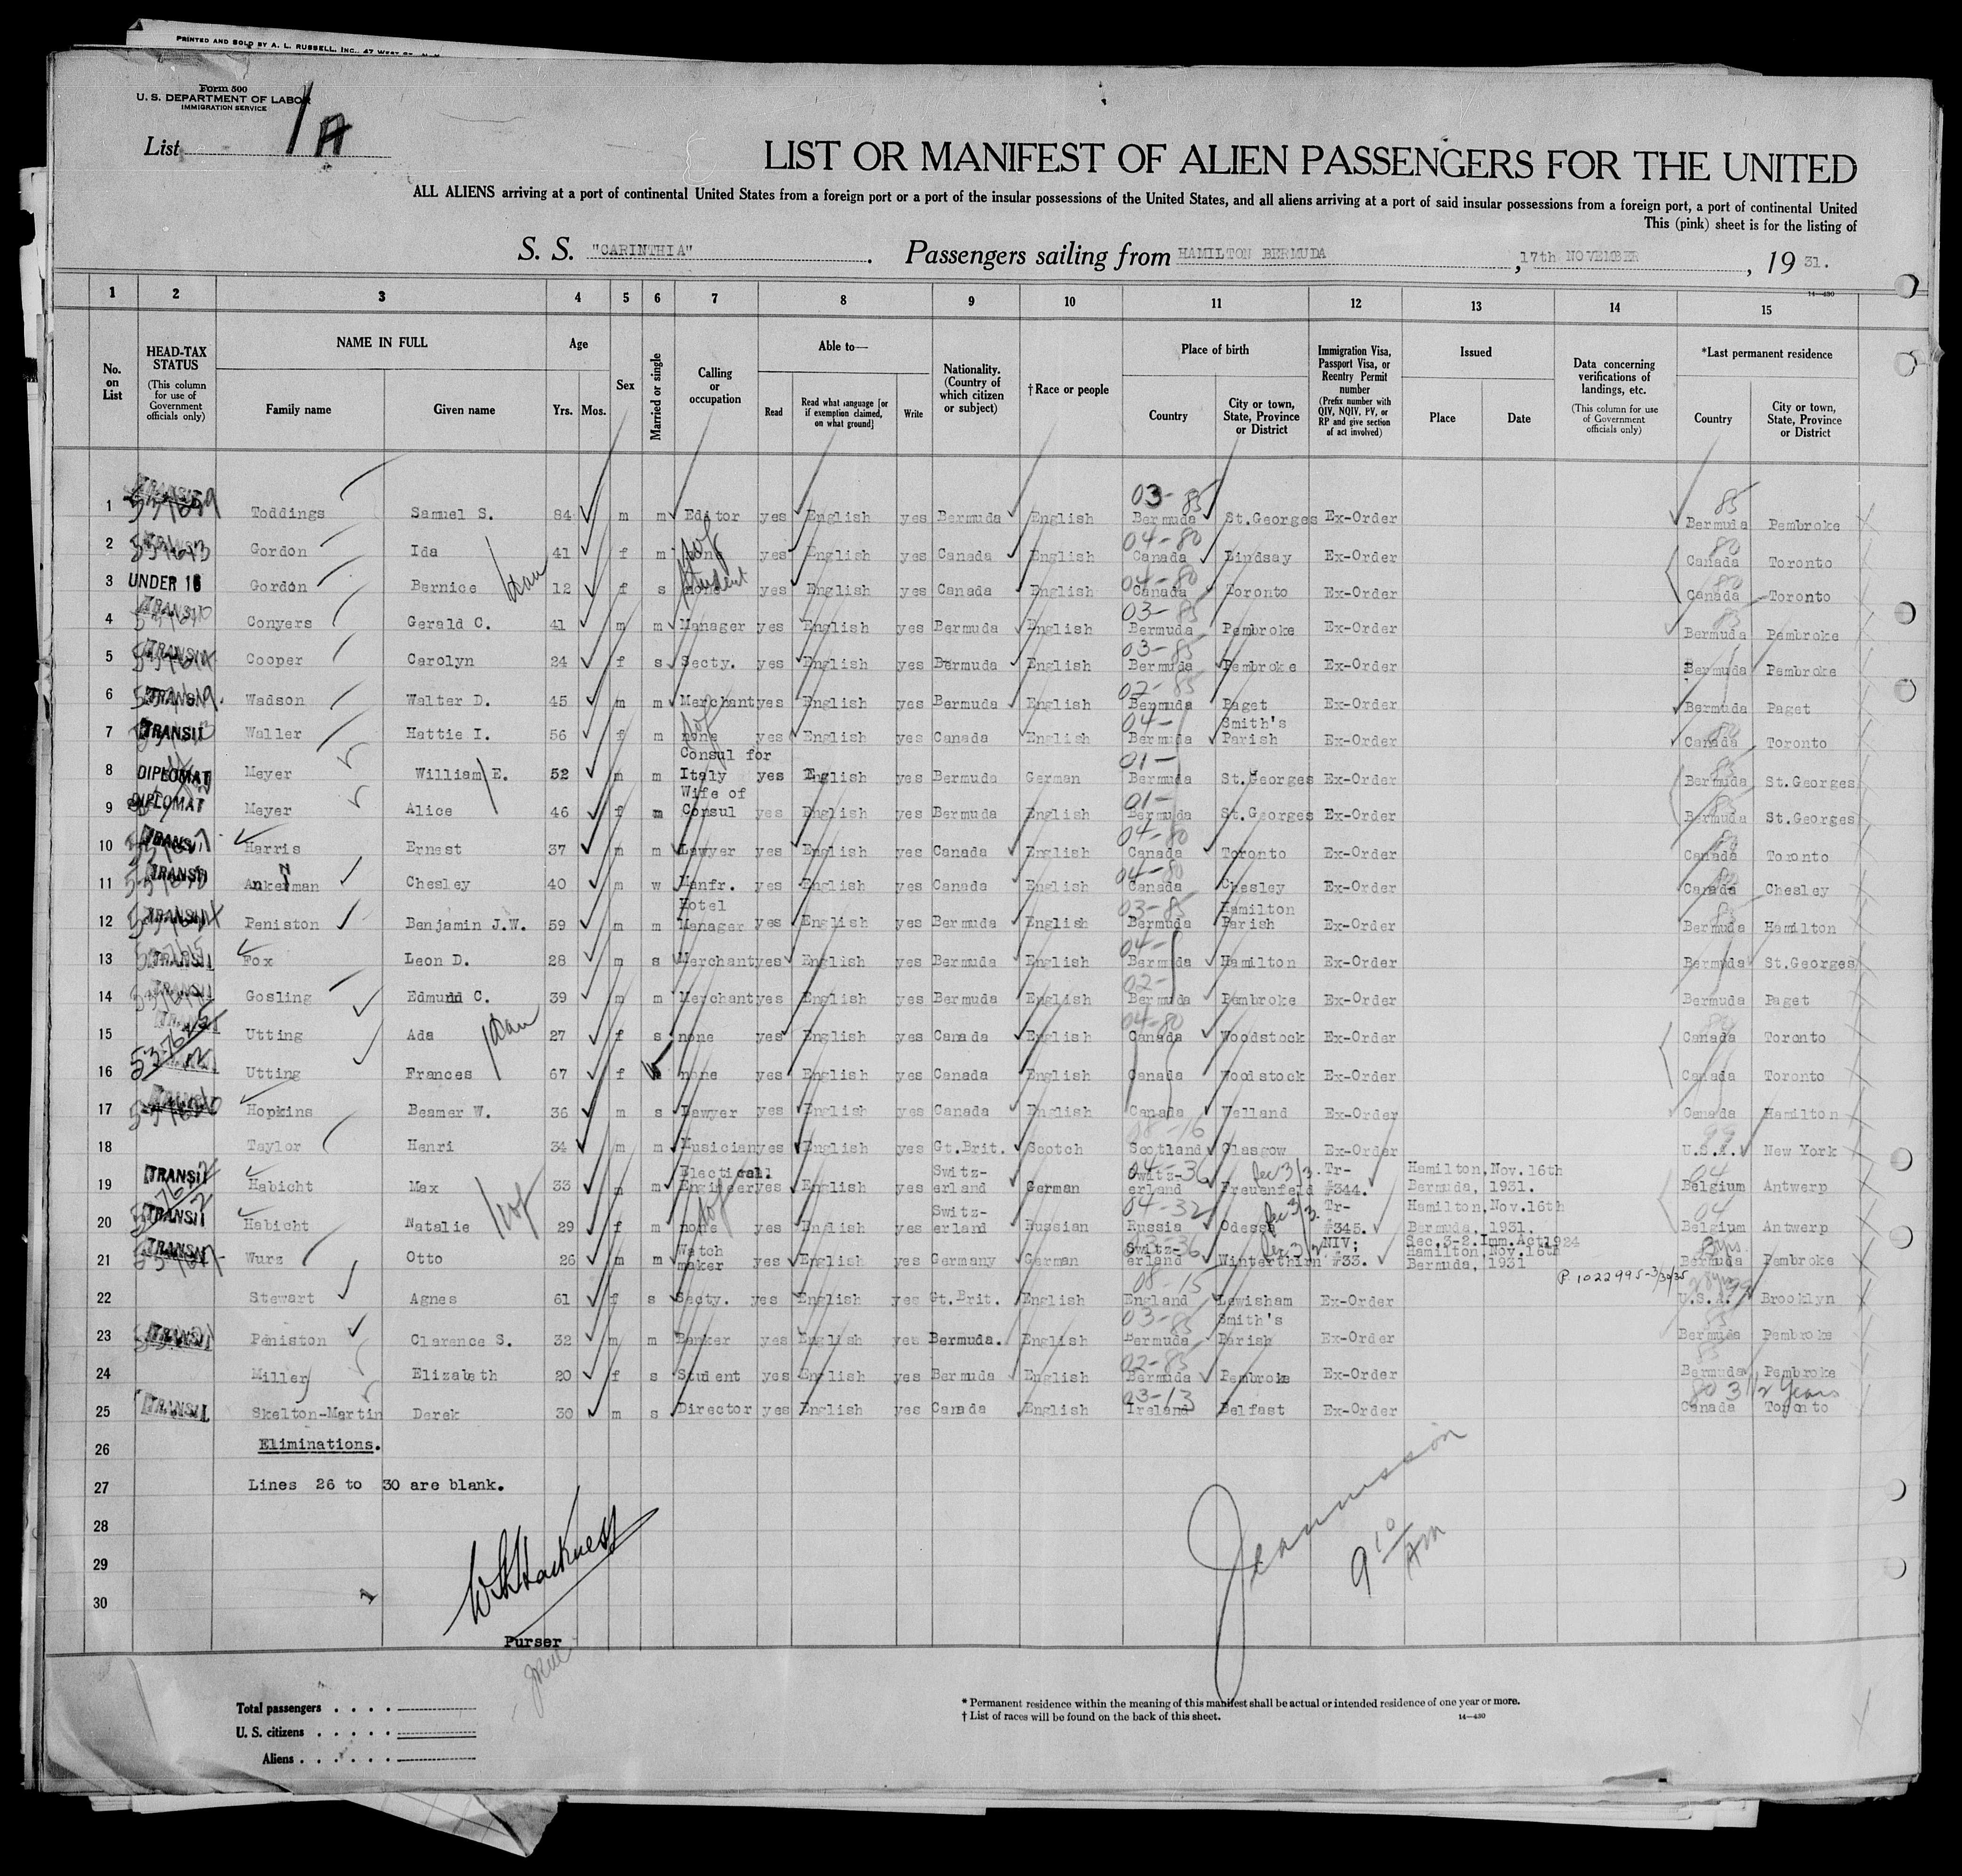 PRINTED AND SOLD BY A. L. RUSSELL, INC., 47 WEST
Form 500
U. S. DEPARTMENT OF LABOR
IMMIGRATION SERVICE
List 1A
LIST OR MANIFEST OF ALIEN PASSENGERS FOR THE UNITED
ALL ALIENS arriving at a port of continental United States from a foreign port or a port of the insular possessions of the United States, and all aliens arriving at a port of said insular possessions from a foreign port, a port of continental United
This (pink) sheet is for the listing of
S. S. "CARINTHIA" . Passengers sailing from HAMILTON BERMUDA , 17th NOVEMBER , 19 31.
14-430
1 2 3 4 5 6 7 8 9 10 11 12 13 14 15
No. on List
HEAD-TAX STATUS
(This column for use of Government officials only)
NAME IN FULL
Family name Given name
Age
Yrs. Mos.
Sex
Married or single
Calling or occupation
Able to—
Read
Read what language [or if exemption claimed, on what ground]
Write
Nationality. (Country of which citizen or subject)
† Race or people
Place of birth
Country
City or town, State, Province or District
Immigration Visa, Passport Visa, or Reentry Permit number
(Prefix number with QIV, NQIV, PV, or RP and give section of act involved)
Issued
Place Date
Data concerning verifications of landings, etc.
(This column for use of Government officials only)
*Last permanent residence
Country
City or town, State, Province or District
03-85 85
1 Toddings Samuel S. 84 m m Editor yes English yes Bermuda English Bermuda St.Georges Ex-Order Bermuda Pembroke
04-80 80
2 Gordon Ida 41 f m none yes English yes Canada English Canada Lindsay Ex-Order Canada Toronto
04-80 80
3 UNDER 16 Gordon Bernice 12 f s none Student yes English yes Canada English Canada Toronto Ex-Order Canada Toronto
03-85 85
4 TRANSIT Conyers Gerald C. 41 m m Manager yes English yes Bermuda English Bermuda Pembroke Ex-Order Bermuda Pembroke
03-85
5 TRANSIT Cooper Carolyn 24 f s Secty. yes English yes Bermuda English Bermuda Pembroke Ex-Order Bermuda Pembroke
02-85
6 TRANSIT Wadson Walter D. 45 m m Merchant yes English yes Bermuda English Bermuda Paget Ex-Order Bermuda Paget
04- 80
7 TRANSIT Waller Hattie I. 56 f m none yes English yes Canada English Bermuda Smith's Parish Ex-Order Canada Toronto
01- 85
8 DIPLOMAT Meyer William E. 52 m m Consul for Italy yes English yes Bermuda German Bermuda St.Georges Ex-Order Bermuda St.Georges
01- 85
9 DIPLOMAT Meyer Alice 46 f m Wife of Consul yes English yes Bermuda English Bermuda St.Georges Ex-Order Bermuda St.Georges
04-80 80
10 TRANSIT Harris Ernest 37 m m Lawyer yes English yes Canada English Canada Toronto Ex-Order Canada Toronto
04-80 80
11 TRANSIT Ankerman Chesley 40 m w Manfr. yes English yes Canada English Canada Chesley Ex-Order Canada Chesley
03-85 85
12 TRANSIT Peniston Benjamin J.W. 59 m m Hotel Manager yes English yes Bermuda English Bermuda Hamilton Parish Ex-Order Bermuda Hamilton
04-
13 TRANSIT Fox Leon D. 28 m s Merchant yes English yes Bermuda English Bermuda Hamilton Ex-Order Bermuda St.Georges
02-
14 TRANSIT Gosling Edmund C. 39 m m Merchant yes English yes Bermuda English Bermuda Pembroke Ex-Order Bermuda Paget
04-80
15 TRANSIT Utting Ada 27 f s none yes English yes Canada English Canada Woodstock Ex-Order Canada Toronto
16 Utting Frances 67 f w none yes English yes Canada English Canada Woodstock Ex-Order Canada Toronto
17 Hopkins Beamer W. 36 m s Lawyer yes English yes Canada English Canada Welland Ex-Order Canada Hamilton
08-16 99
18 Taylor Henri 34 m m Musician yes English yes Gt.Brit. Scotch Scotland Glasgow Ex-Order U.S.A. New York
04-36 Sec 3/3. 04
19 TRANSIT Habicht Max 33 m m Electical Engineer yes English yes Switz-erland German Switz-erland Freuenfeld Tr- #344. Hamilton, Bermuda, Nov. 16th 1931. Belgium Antwerp
04-32 Sec 3/3. 04
20 TRANSIT Habicht Natalie 29 f m none yes English yes Switz-erland Russian Russia Odessa Tr- #345. Hamilton, Bermuda, Nov.16th 1931. Belgium Antwerp
03-36 Sec 3/2 3 yrs.
21 TRANSIT Wurz Otto 26 m m Watch maker yes English yes Germany German Switz-erland Winterthirn NIV; #33. Sec.3-2.Imm.Act1924 Hamilton, Bermuda, Nov. 16th 1931 Bermuda Pembroke
08-15 P 1022995-3/30/35
22 Stewart Agnes 61 f s Secty. yes English yes Gt.Brit. English England Lewisham Ex-Order U.S.A. Brooklyn
03-85 85
23 TRANSIT Peniston Clarence S. 32 m m Banker yes English yes Bermuda. English Bermuda Smith's Parish Ex-Order Bermuda Pembroke
02-85 85
24 Miller Elizabeth 20 f s Student yes English yes Bermuda English Bermuda Pembroke Ex-Order Bermuda Pembroke
03-13 80 3 1/2 Years
25 TRANSIT Skelton-Martin Derek 30 m s Director yes English yes Canada English Ireland Belfast Ex-Order Canada Toronto
26 Eliminations.
27 Lines 26 to 30 are blank.
28
29
30
W Harkness
Purser
9 10 AM
Total passengers
U. S. citizens
Aliens
* Permanent residence within the meaning of this manifest shall be actual or intended residence of one year or more.
† List of races will be found on the back of this sheet.
14-430